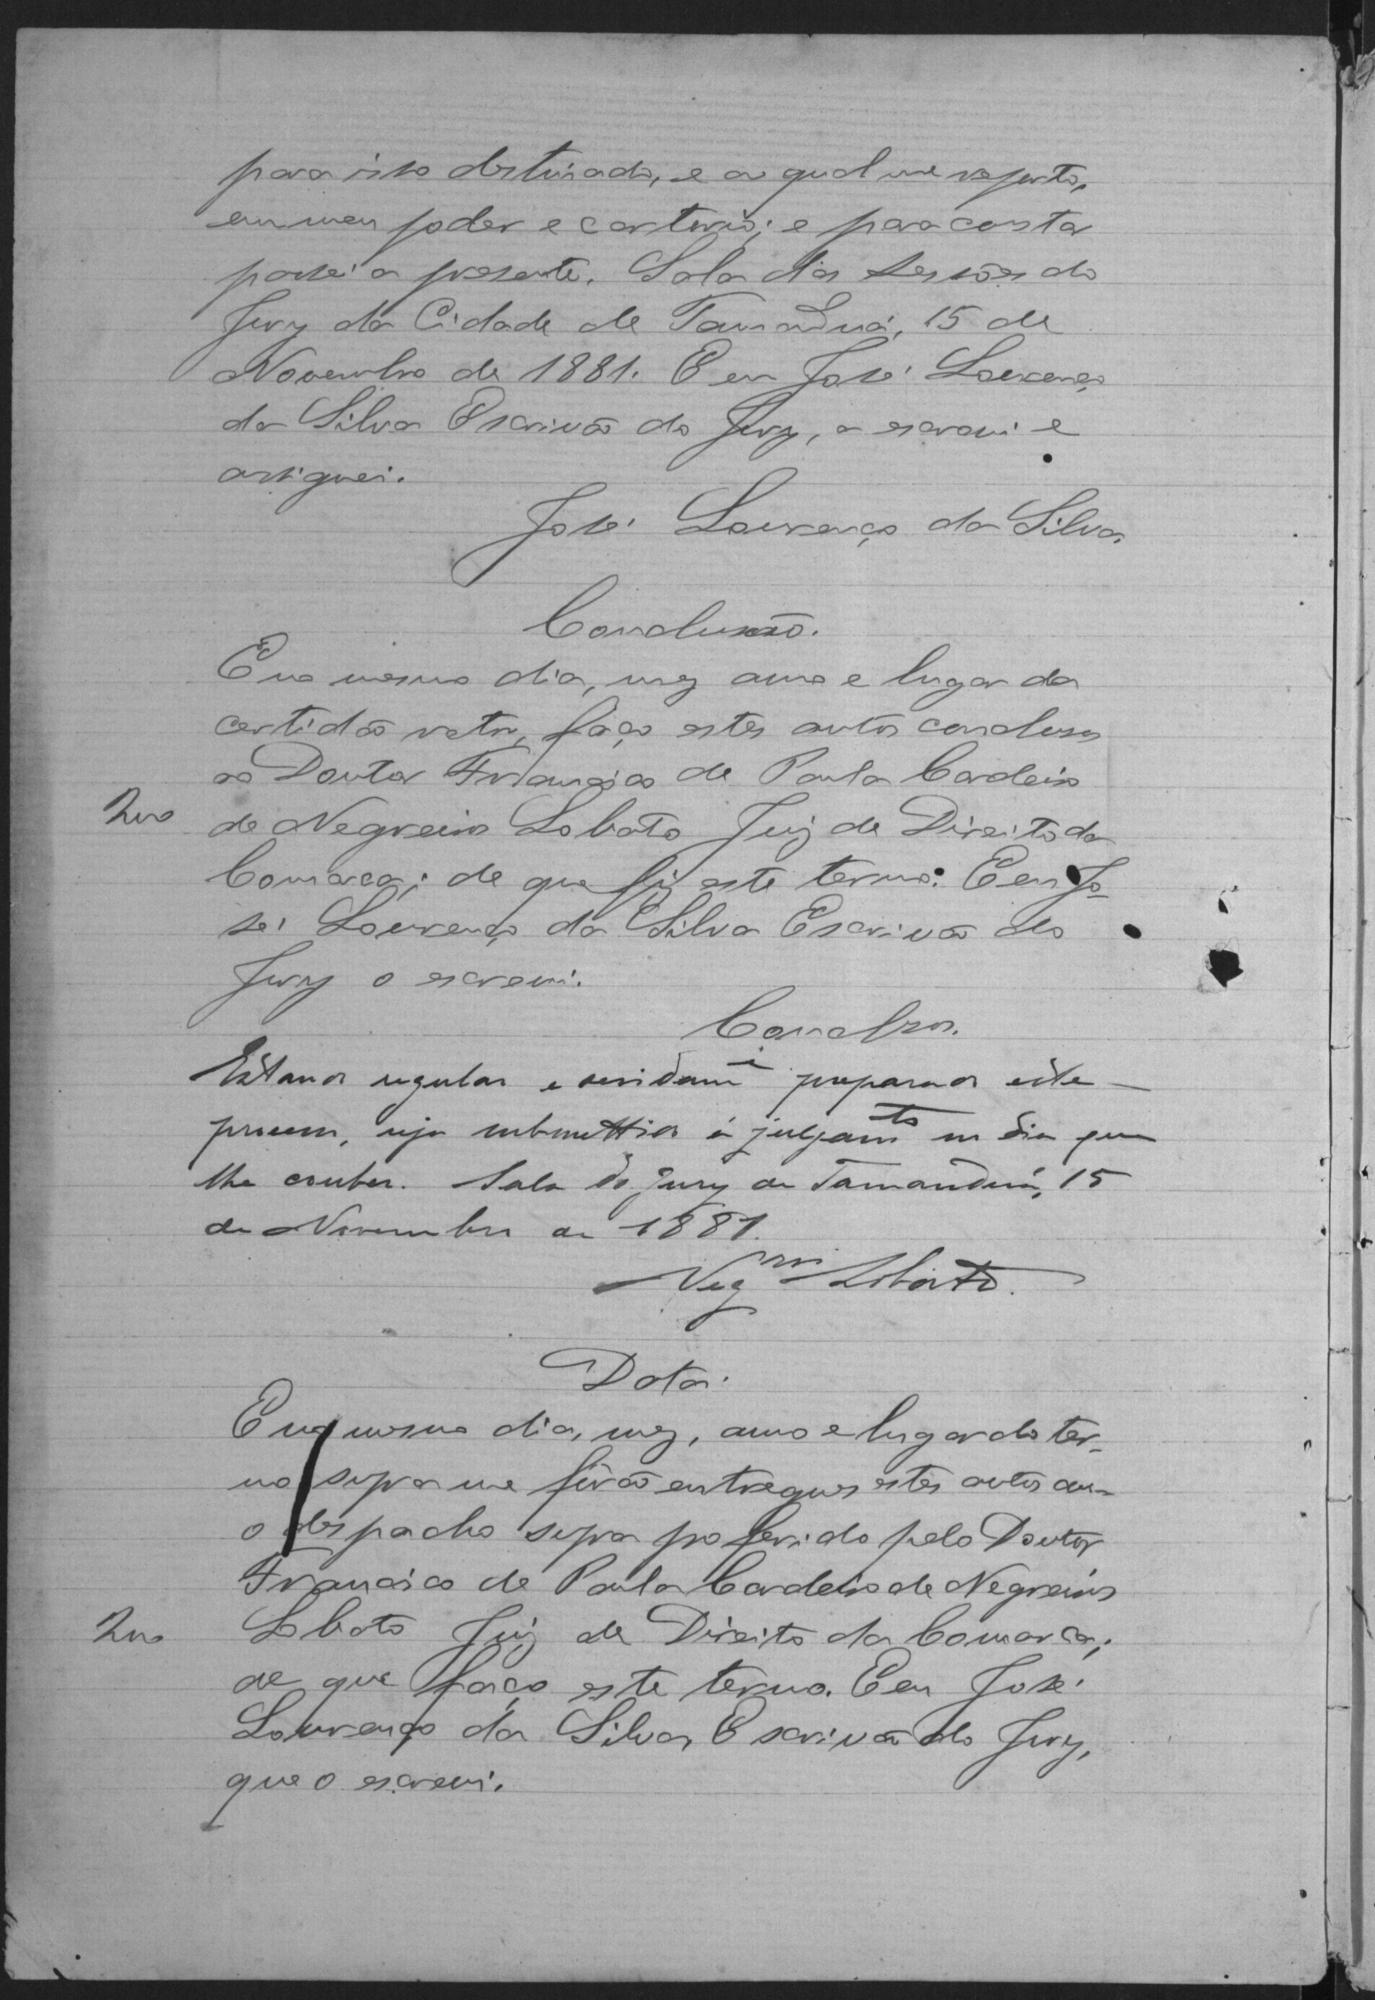 para isso destinado, e ao qual me reporto,
em meu poder e cartorio; e para constar
passei a presente. Sala das Sessões do
Jury da Cidade de Tamanduá, 15 de
Novembro de 1881. E eu José Lourenço
da Silva Escrivão do Jury, a escrevi e
assignei.
José Lourenço da Silva
Conclusão.
E no mesmo dia, mez anno e lugar da
certidão retro, faço estes autos conclusos
ao Doutor Francisco de Paula Cordeiro
de Negreiros Lobato Juiz de Direito da
Comarca; de que fiz este termo. E eu Jo-
sé Lourenço da Silva Escrivão do
Jury o escrevi.
Conclsos.
Estando regular e devidam.e preparado este
processo, seja submettido á julgam.to no dia que
lhe couber. Sala do Jury de Tamanduá, 15
de Novembro de 1881.
Neg.ros Lobato.
Data.
E no mesmo dia, mez, anno e lugar do ter-
mo supra me fôrão entregues estes autos com
o despacho supra proferido pelo Doutor
Francisco de Paula Cordeiro de Negreiros
Lobato Juiz de Direito da Comarca;
de que faço este termo. E eu José
Lourenço da Silva, Escrivão do Jury,
que o escrevi.